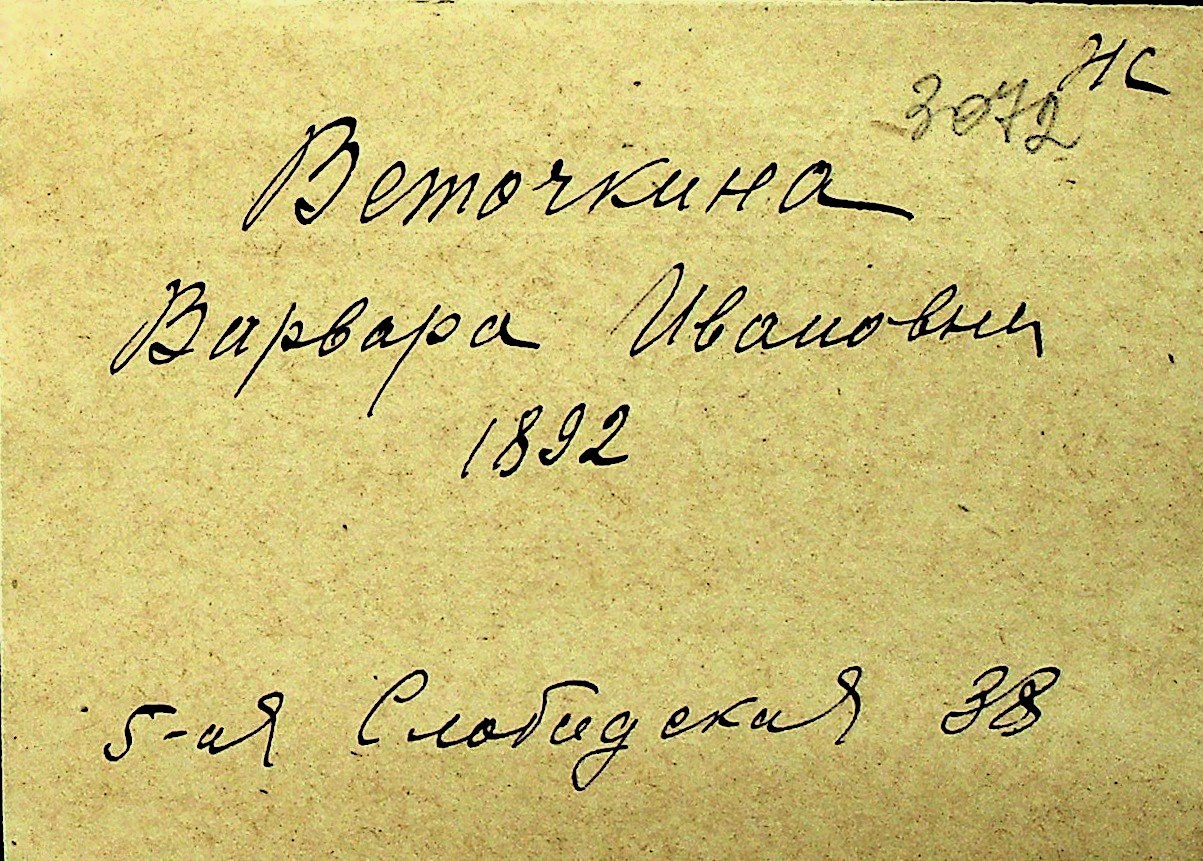 нс
3072
Веточкина
Варвара Ивановна
1892
5-ая Слободская 38